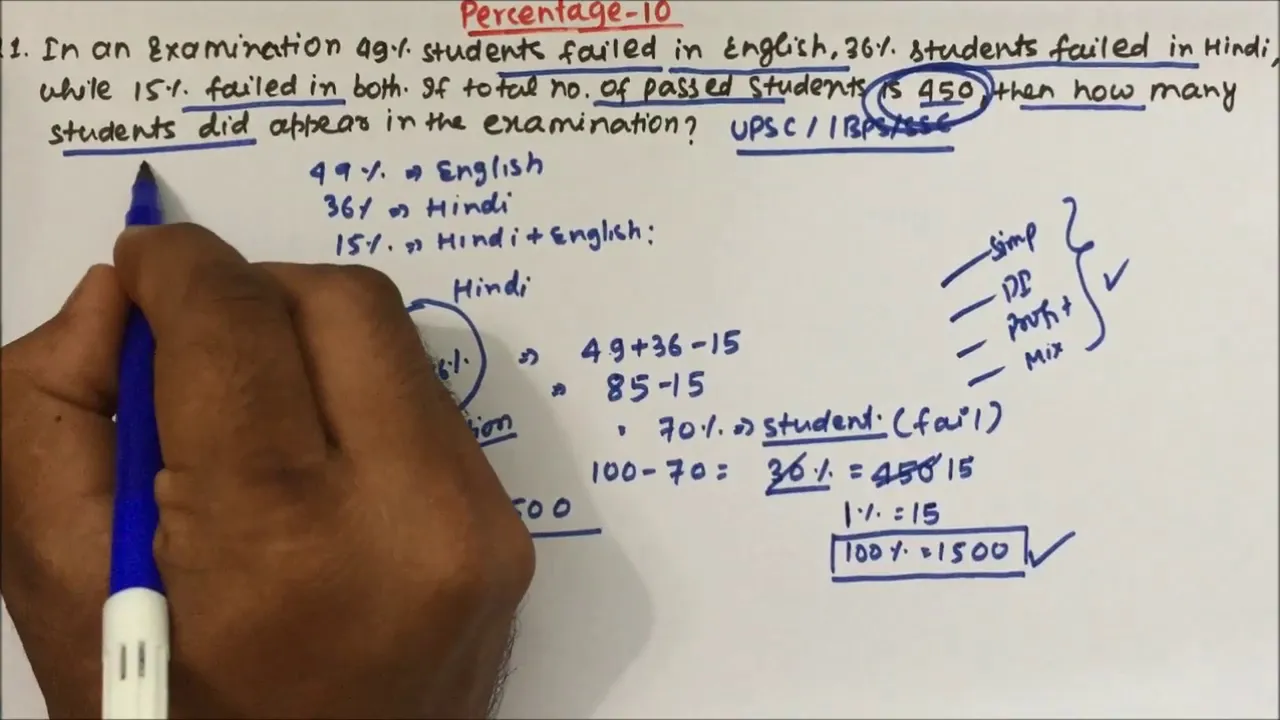 Percentage-10
1. In an Examination 49% students failed in English, 36% students failed in Hindi,
while 15% failed in both. If total no. of passed students is 450, then how many
students did appear in the examination? UPSC / IBPS/SSC
49% ⇒ English
36% ⇒ Hindi
15% ⇒ Hindi + English:
Hindi
6%. ⇒ 49+36-15
85-15
70% ⇒ student. (fail)
100-70= 30% = 450 15
500
1% = 15
100% = 1500
Simp
DI
Profit
Mix